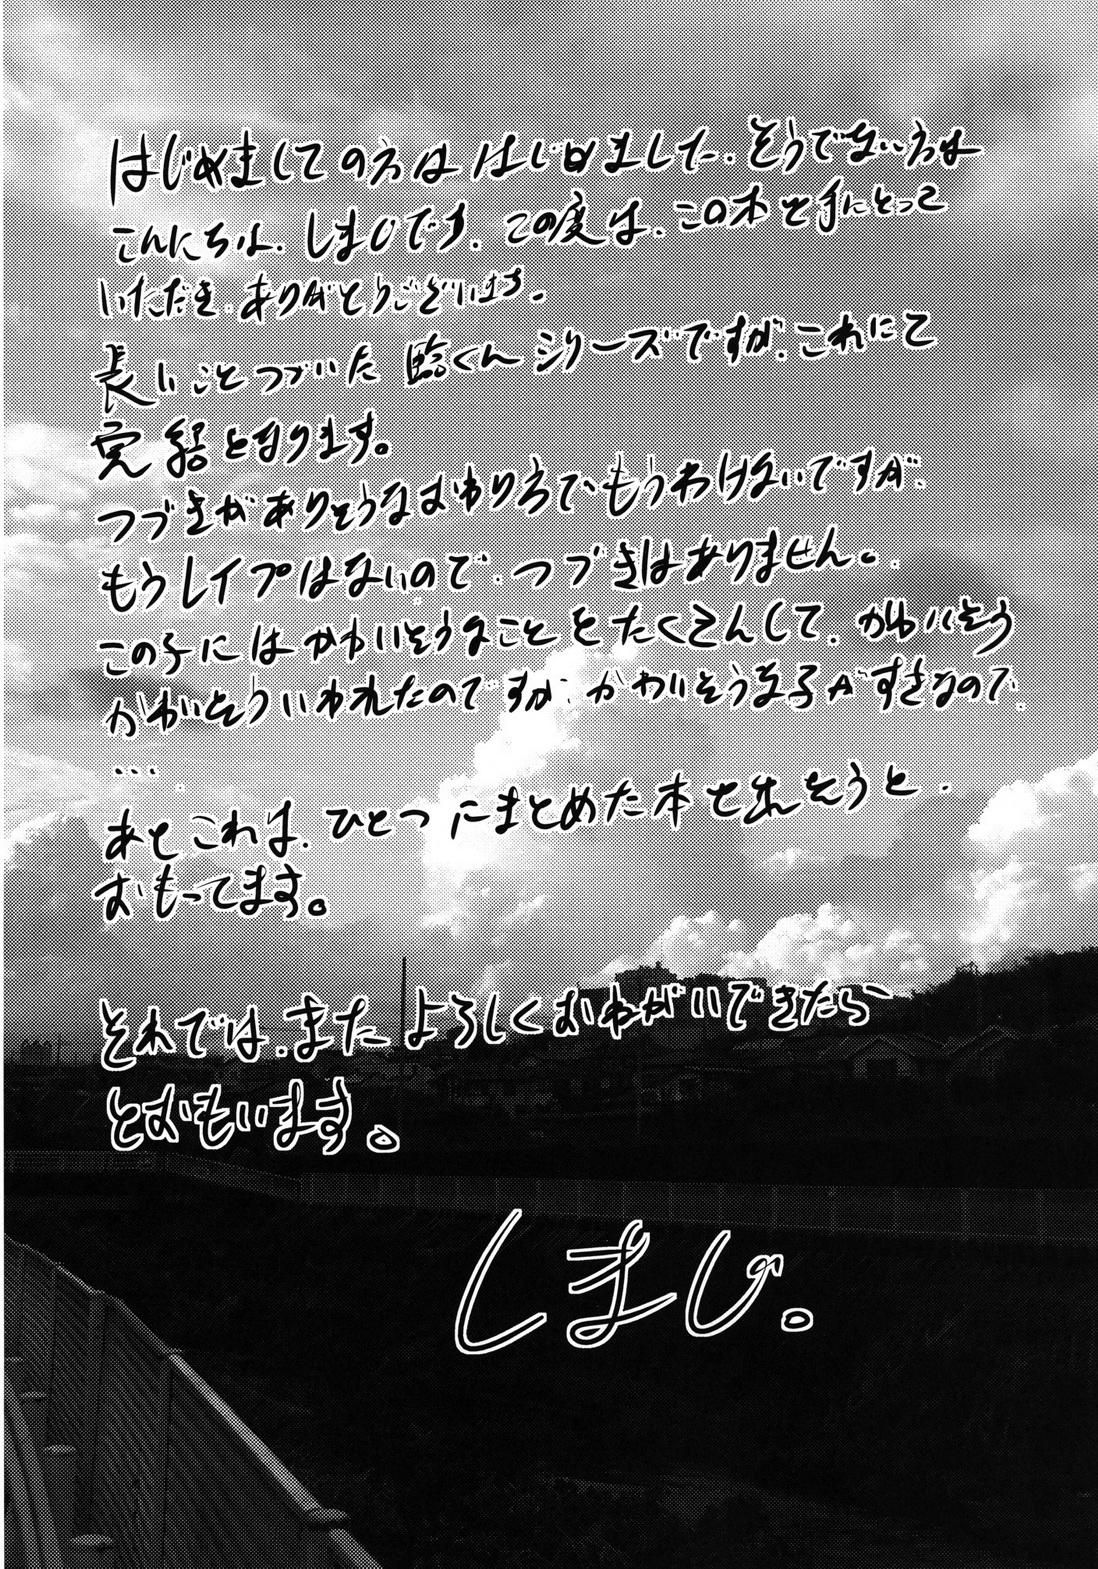 はじめましての方ははじめました。そうでない方は
こんにちは。しまじです。この度は、この本を手にとって
いただき、ありがとうございます。
長いことつづいた くんシリーズですが、これにて
完結となります。
つづきがありそうなおわり方でもうしわけないですが、
もうレイプはないので、つづきはありません。
この子にはかわいそうなことをたくさんして、かわいそう
かわいそういわれたのですが、かわいそうな子がすきなので
…
あとこれは、ひとつにまとめた本を出そうと、
おもってます。
それでは、また よろしくおねがいできたら
とおもいます。
しまじ。